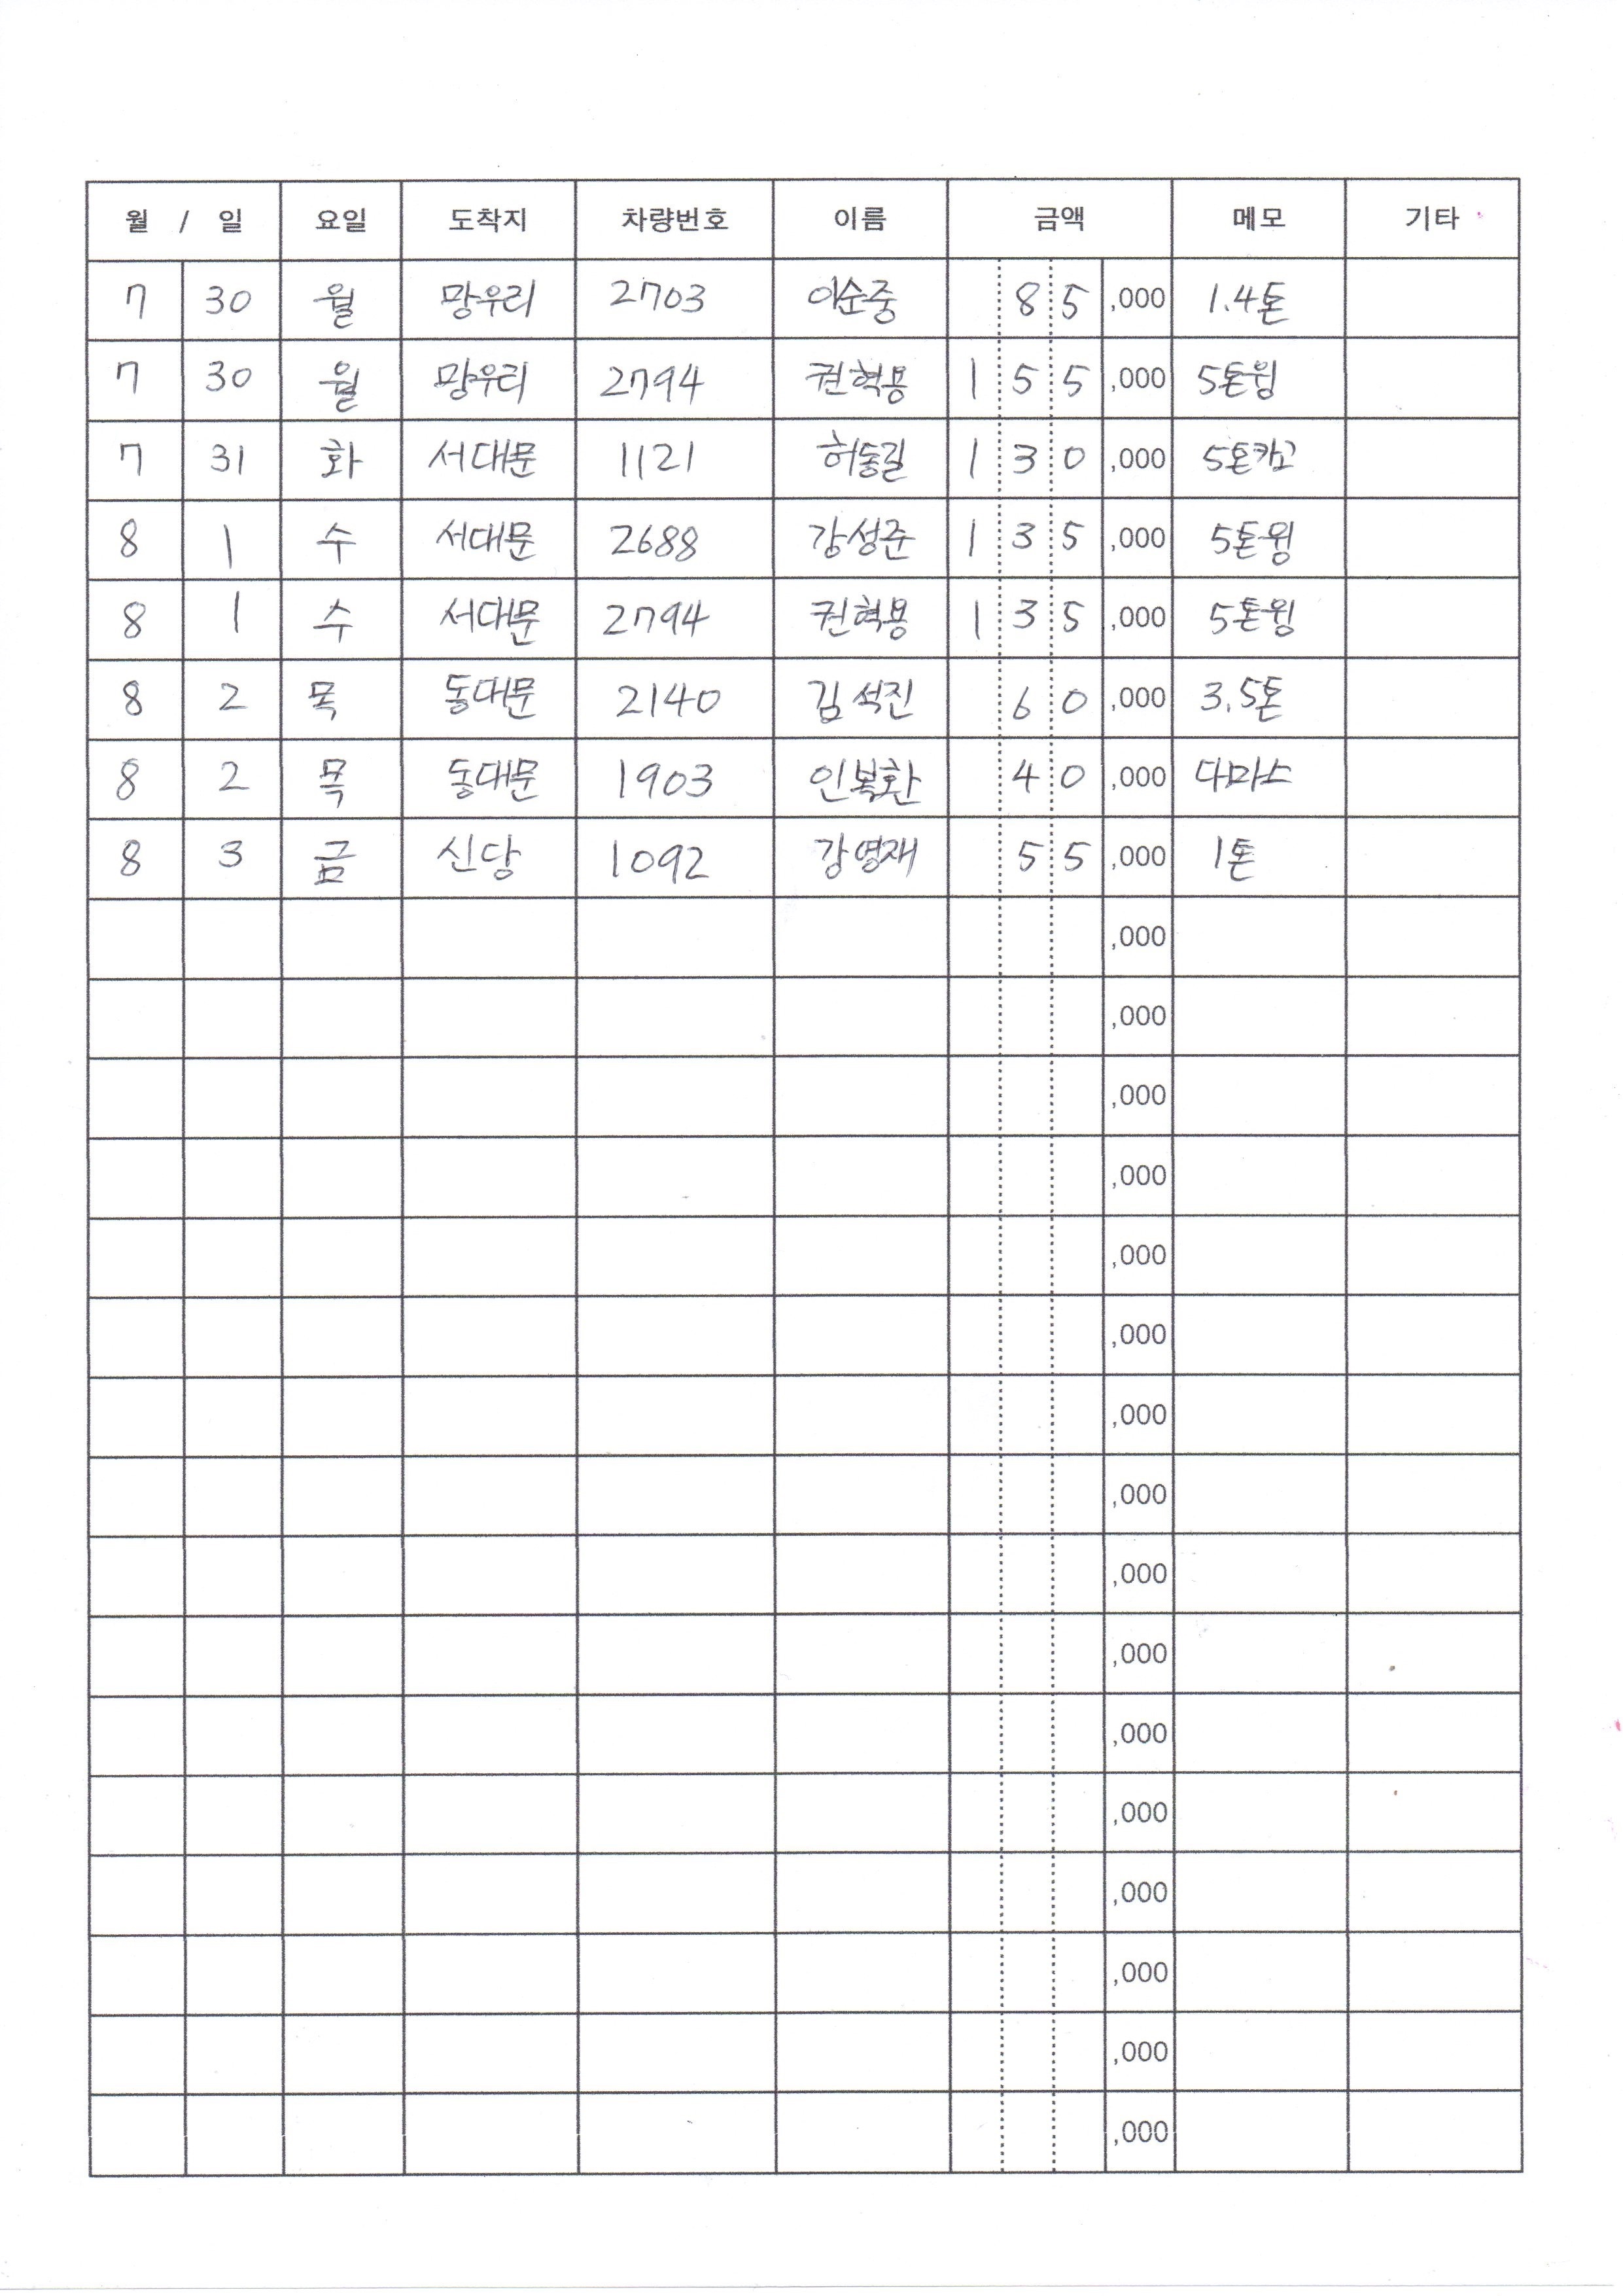 월 / 일 요일 도착지 차량번호 이름 금액 메모 기타
7 30 월 망우리 2703 이순중 85,000 1.4톤
7 30 월 망우리 2794 권혁용 155,000 5톤윙
7 31 화 서대문 1121 허동길 130,000 5톤카고
8 1 수 서대문 2688 강성준 135,000 5톤윙
8 1 수 서대문 2794 권혁용 135,000 5톤윙
8 2 목 동대문 2140 김석진 60,000 3.5톤
8 2 목 동대문 1903 인복환 40,000 다마스
8 3 금 신당 1092 강영재 55,000 1톤
,000
,000
,000
,000
,000
,000
,000
,000
,000
,000
,000
,000
,000
,000
,000
,000